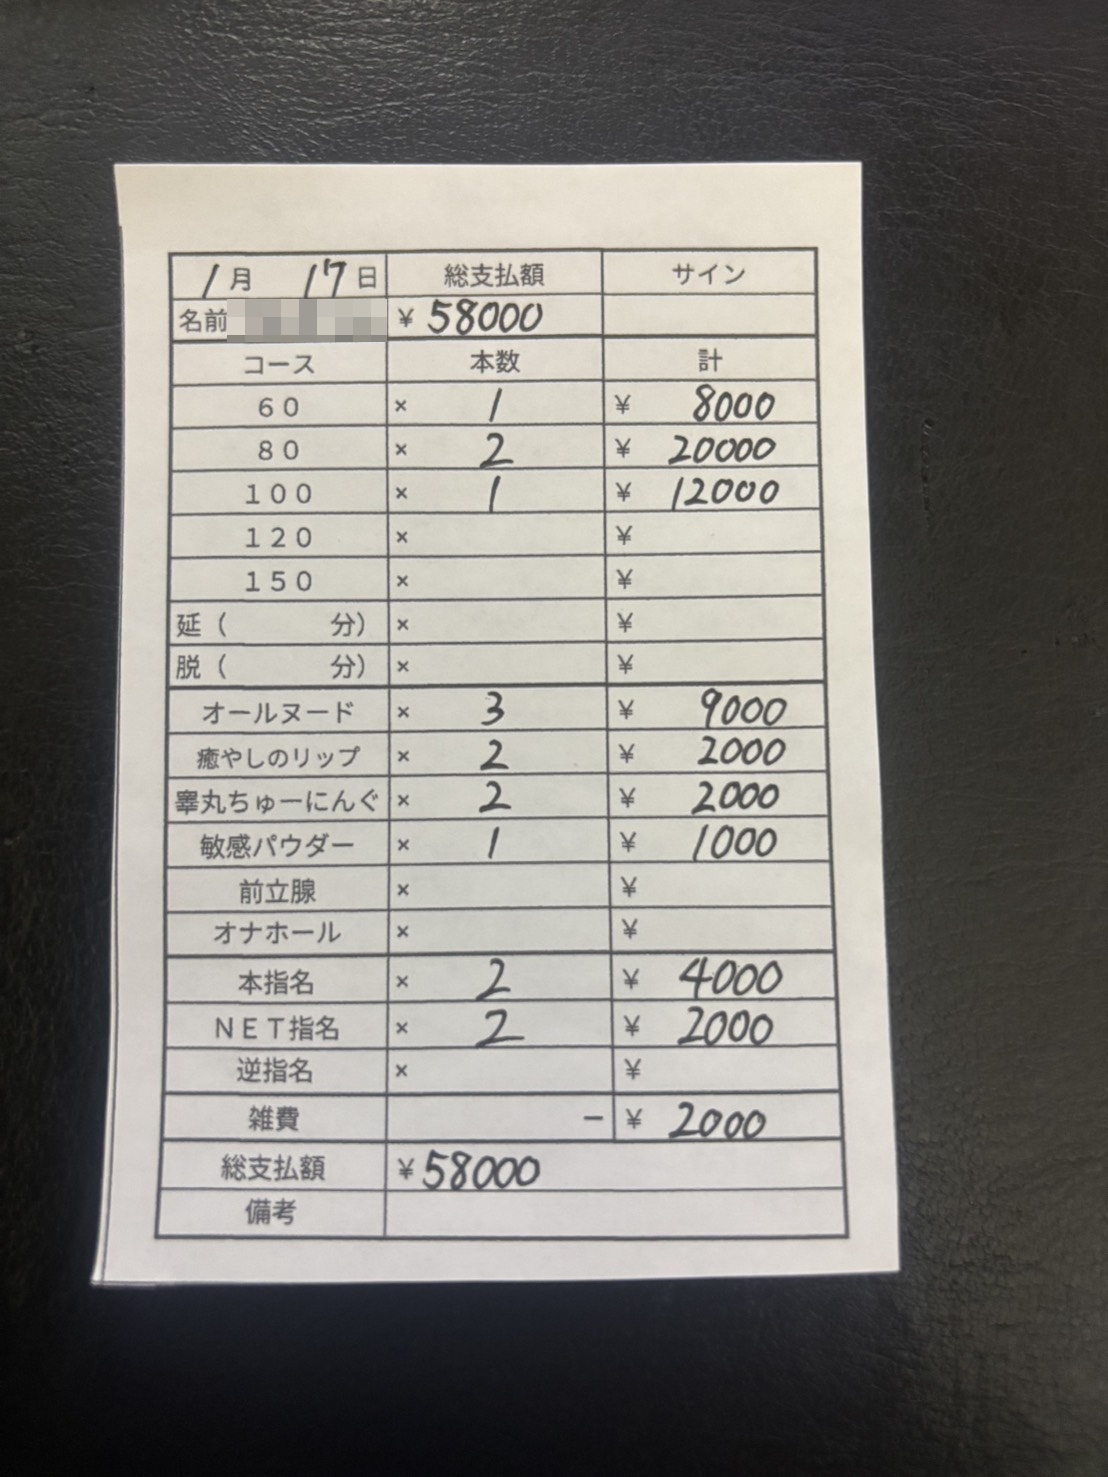 1月 17日 総支払額 サイン
名前 ¥58000
コース 本数 計
60 × 1 ¥ 8000
80 × 2 ¥ 20000
100 × 1 ¥ 12000
120 × ¥
150 × ¥
延( 分) × ¥
脱( 分) × ¥
オールヌード × 3 ¥ 9000
癒やしのリップ × 2 ¥ 2000
睾丸ちゅーにんぐ × 2 ¥ 2000
敏感パウダー × 1 ¥ 1000
前立腺 × ¥
オナホール × ¥
本指名 × 2 ¥ 4000
NET指名 × 2 ¥ 2000
逆指名 × ¥
雑費 − ¥ 2000
総支払額 ¥58000
備考